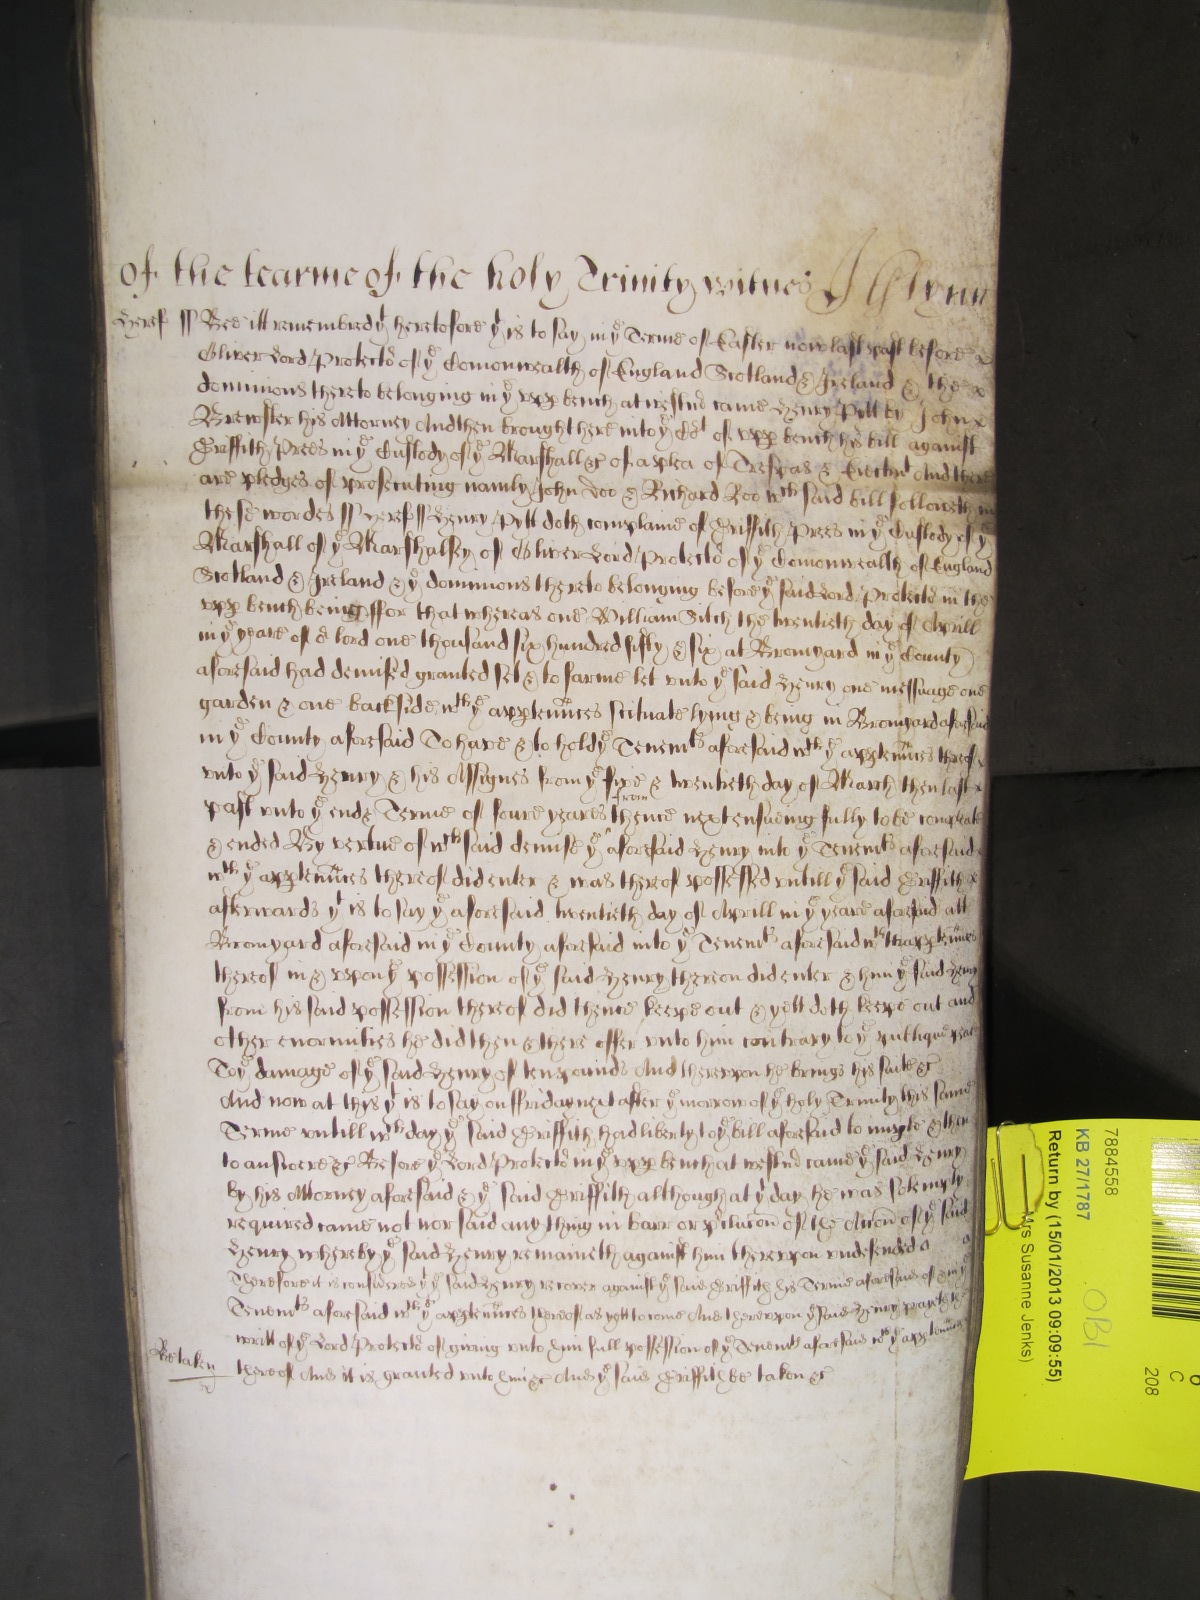 of the tearme of the holy Trinity witnes J Glynn
Heref ss Bee itt remembred yt heretofore yt is to say in ye Terme of Easter now last past before
Oliver Lord Protector of ye Comonwealth of England Scotland & Ireland & the
dominions thereto belonging in ye upp bench at Westmr came Henry Pitt by John
Brewster his Attorney And then brought here into ye Cort of upp bench his bill against
Griffith Prees in ye Custody of ye Marshall &c of a plea of Trespas & Eiectmt And there
are pledges of prosecuting namly John Doo & Richard Roo wch said bill followeth in
these wordes ss Heref ss Henry Pitt doth complaine of Griffith Prees in ye Custody of ye
Marshall of ye Marshalsey of Oliver Lord Protector of ye Comonwealth of England
Scotland & Ireland & ye dominions thereto belonging before ye said Lord Protector in the
upp bench being ffor that whereas one William Sitch the twentieth day of Aprill
in ye yeare of or lord one thousand six hundred fifty & six at Bromyard in ye County
aforesaid had demised granted set & to farme let unto ye said Henry one messuage one
garden & one backside wth ye apptennces scituate lying & being in Bromyard aforesaid
in ye County aforesaid To have & to hold ye Tenemts aforesaid wth ye apptennces thereof
unto ye said Henry & his Assignes from ye five & twentieth day of March then last
past unto ye end & Terme of foure yeares from thence next ensueing fully to be compleate
& ended By vertue of wch said demise ye aforesaid Henry into ye Tenemts aforesaid
wth ye apptennces thereof did enter & was thereof possessed untill ye said Griffith
afterwards yt is to say ye aforesaid twentieth day of Aprill in ye yeare aforesaid att
Bromyard aforesaid in ye County aforesaid into ye Tenemts aforesaid wth th apptennces
thereof in & upon ye possession of ye said Henry thereon did enter & him ye said Henry
from his said possession thereof did thence keepe out & yett doth keepe out and
other enormities he did then & there offer unto him contrary to ye publique peace
To ye damage of ye said Henry of ten pounds And thereupon he brings his suite &c
And now at this yt is to say on ffriday next after ye morrow of ye holy Trinity this same
Terme untill wch day ye said Griffith had liberty to ye bill aforesaid to imple & then
to answere &c Before ye Lord Protector in ye upp bench at Westmr came ye said Henry
by his Attorney aforesaid & ye said Griffith although at yt day he was solemply
required came not nor said any thing in barr or preclucon of the Accon of ye said
Henry whereby ye said Henry remaineth against him thereupon undefended
Therefore it is considered yt ye said Henry recover against ye said Griffith his Terme aforesaid of & in ye
Tenemts aforesaid wth ye apptennces thereof as yett to come And thereupon ye said Henry prayeth the
writt of ye Lord Protector of giving unto him full possession of ye Tenemts aforesaid wth ye apptennces
Be taken
thereof And it is granted unto him &c And ye said Griffith be taken &c
7884558
KB 27/1787
Return by (15/01/2013 09:09:55)
Mrs Susanne Jenks)
OBI
C
208